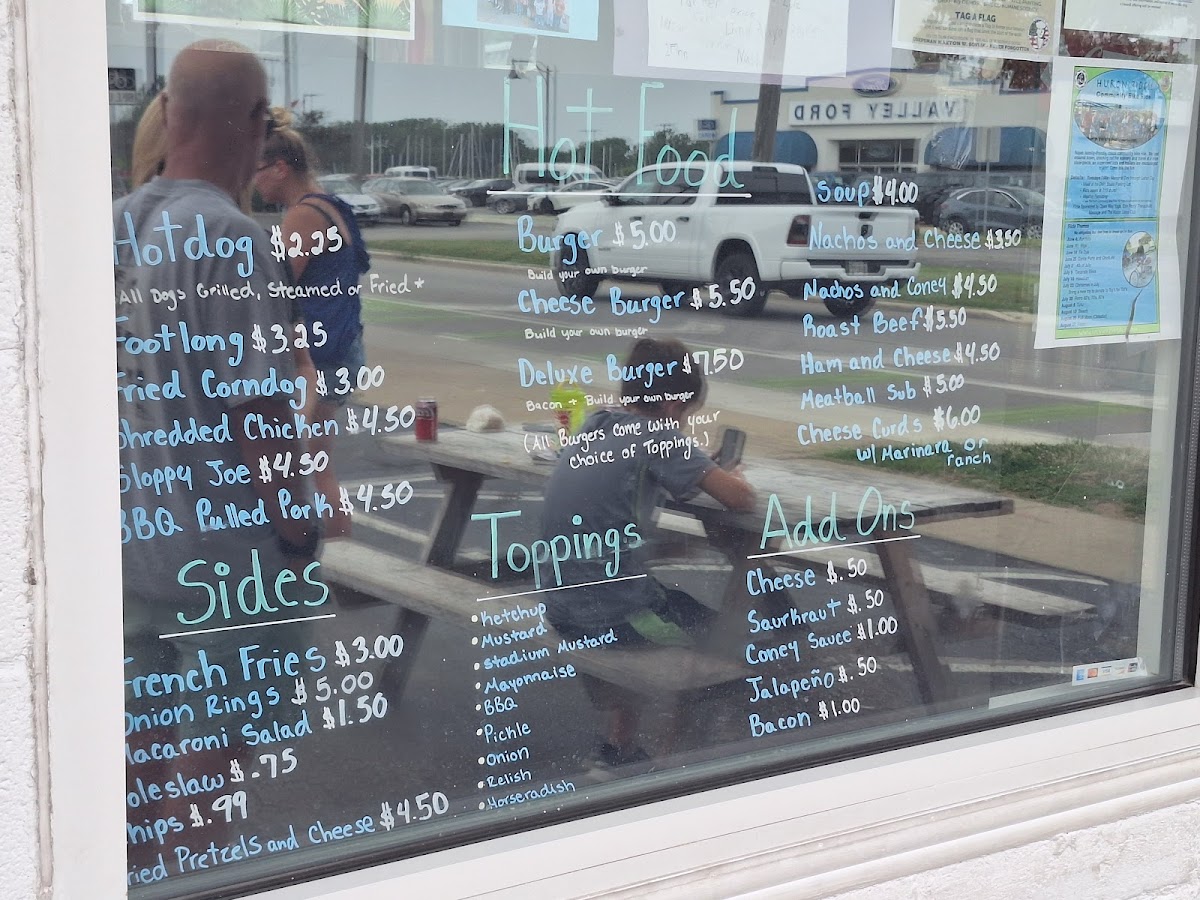 TAG A FLAG
VALLEY FORD
Hot Food
Hotdog $2.25
All Dogs Grilled, Steamed or Fried *
Footlong $3.25
Fried Corndog $3.00
Shredded Chicken $4.50
Sloppy Joe $4.50
BBQ Pulled Pork $4.50
Burger $5.00
Build your own burger
Cheese Burger $5.50
Build your own burger
Deluxe Burger $7.50
Bacon + Build your own burger
(All Burgers come with your
choice of Toppings.)
Soup $4.00
Nachos and Cheese $3.50
Nachos and Coney $4.50
Roast Beef $5.50
Ham and Cheese $4.50
Meatball Sub $5.00
Cheese Curds $6.00
w/ Marinara or
ranch
Sides
French Fries $3.00
Onion Rings $5.00
Macaroni Salad $1.50
oleslaw $.75
hips $.99
ried Pretzels and Cheese $4.50
Toppings
• Ketchup
• Mustard
• Stadium Mustard
• Mayonnaise
• BBQ
• Pickle
• Onion
• Relish
• Horseradish
Add Ons
Cheese $.50
Saurkraut $.50
Coney Sauce $1.00
Jalapeño $.50
Bacon $1.00